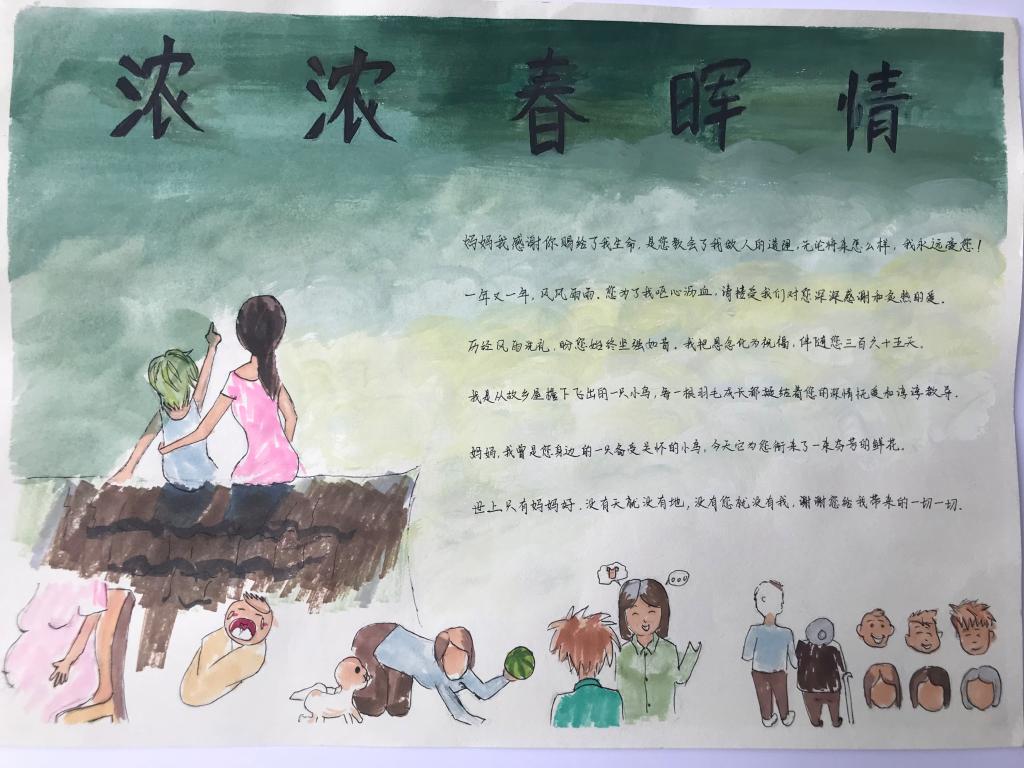 浓浓春晖情
妈妈我感谢你赐给了我生命，是您教会了我做人的道理，无论将来怎么样，我永远爱您！
一年又一年，风风雨雨。您为了我呕心沥血，请接受我们对您深深感谢和炙热的爱。
历经风雨洗礼，盼您始终坚强如昔。我把思念化为祝福，伴随您三百六十五天。
我是从故乡屋檐下飞出的一只小鸟，每一根羽毛成长都凝结着您的深情抚爱和谆谆教导。
妈妈，我曾是您身边的一只备受关怀的小鸟，今天它为您衔来了一束芬芳的鲜花。
世上只有妈妈好，没有天就没有地，没有您就没有我，谢谢您给我带来的一切一切。